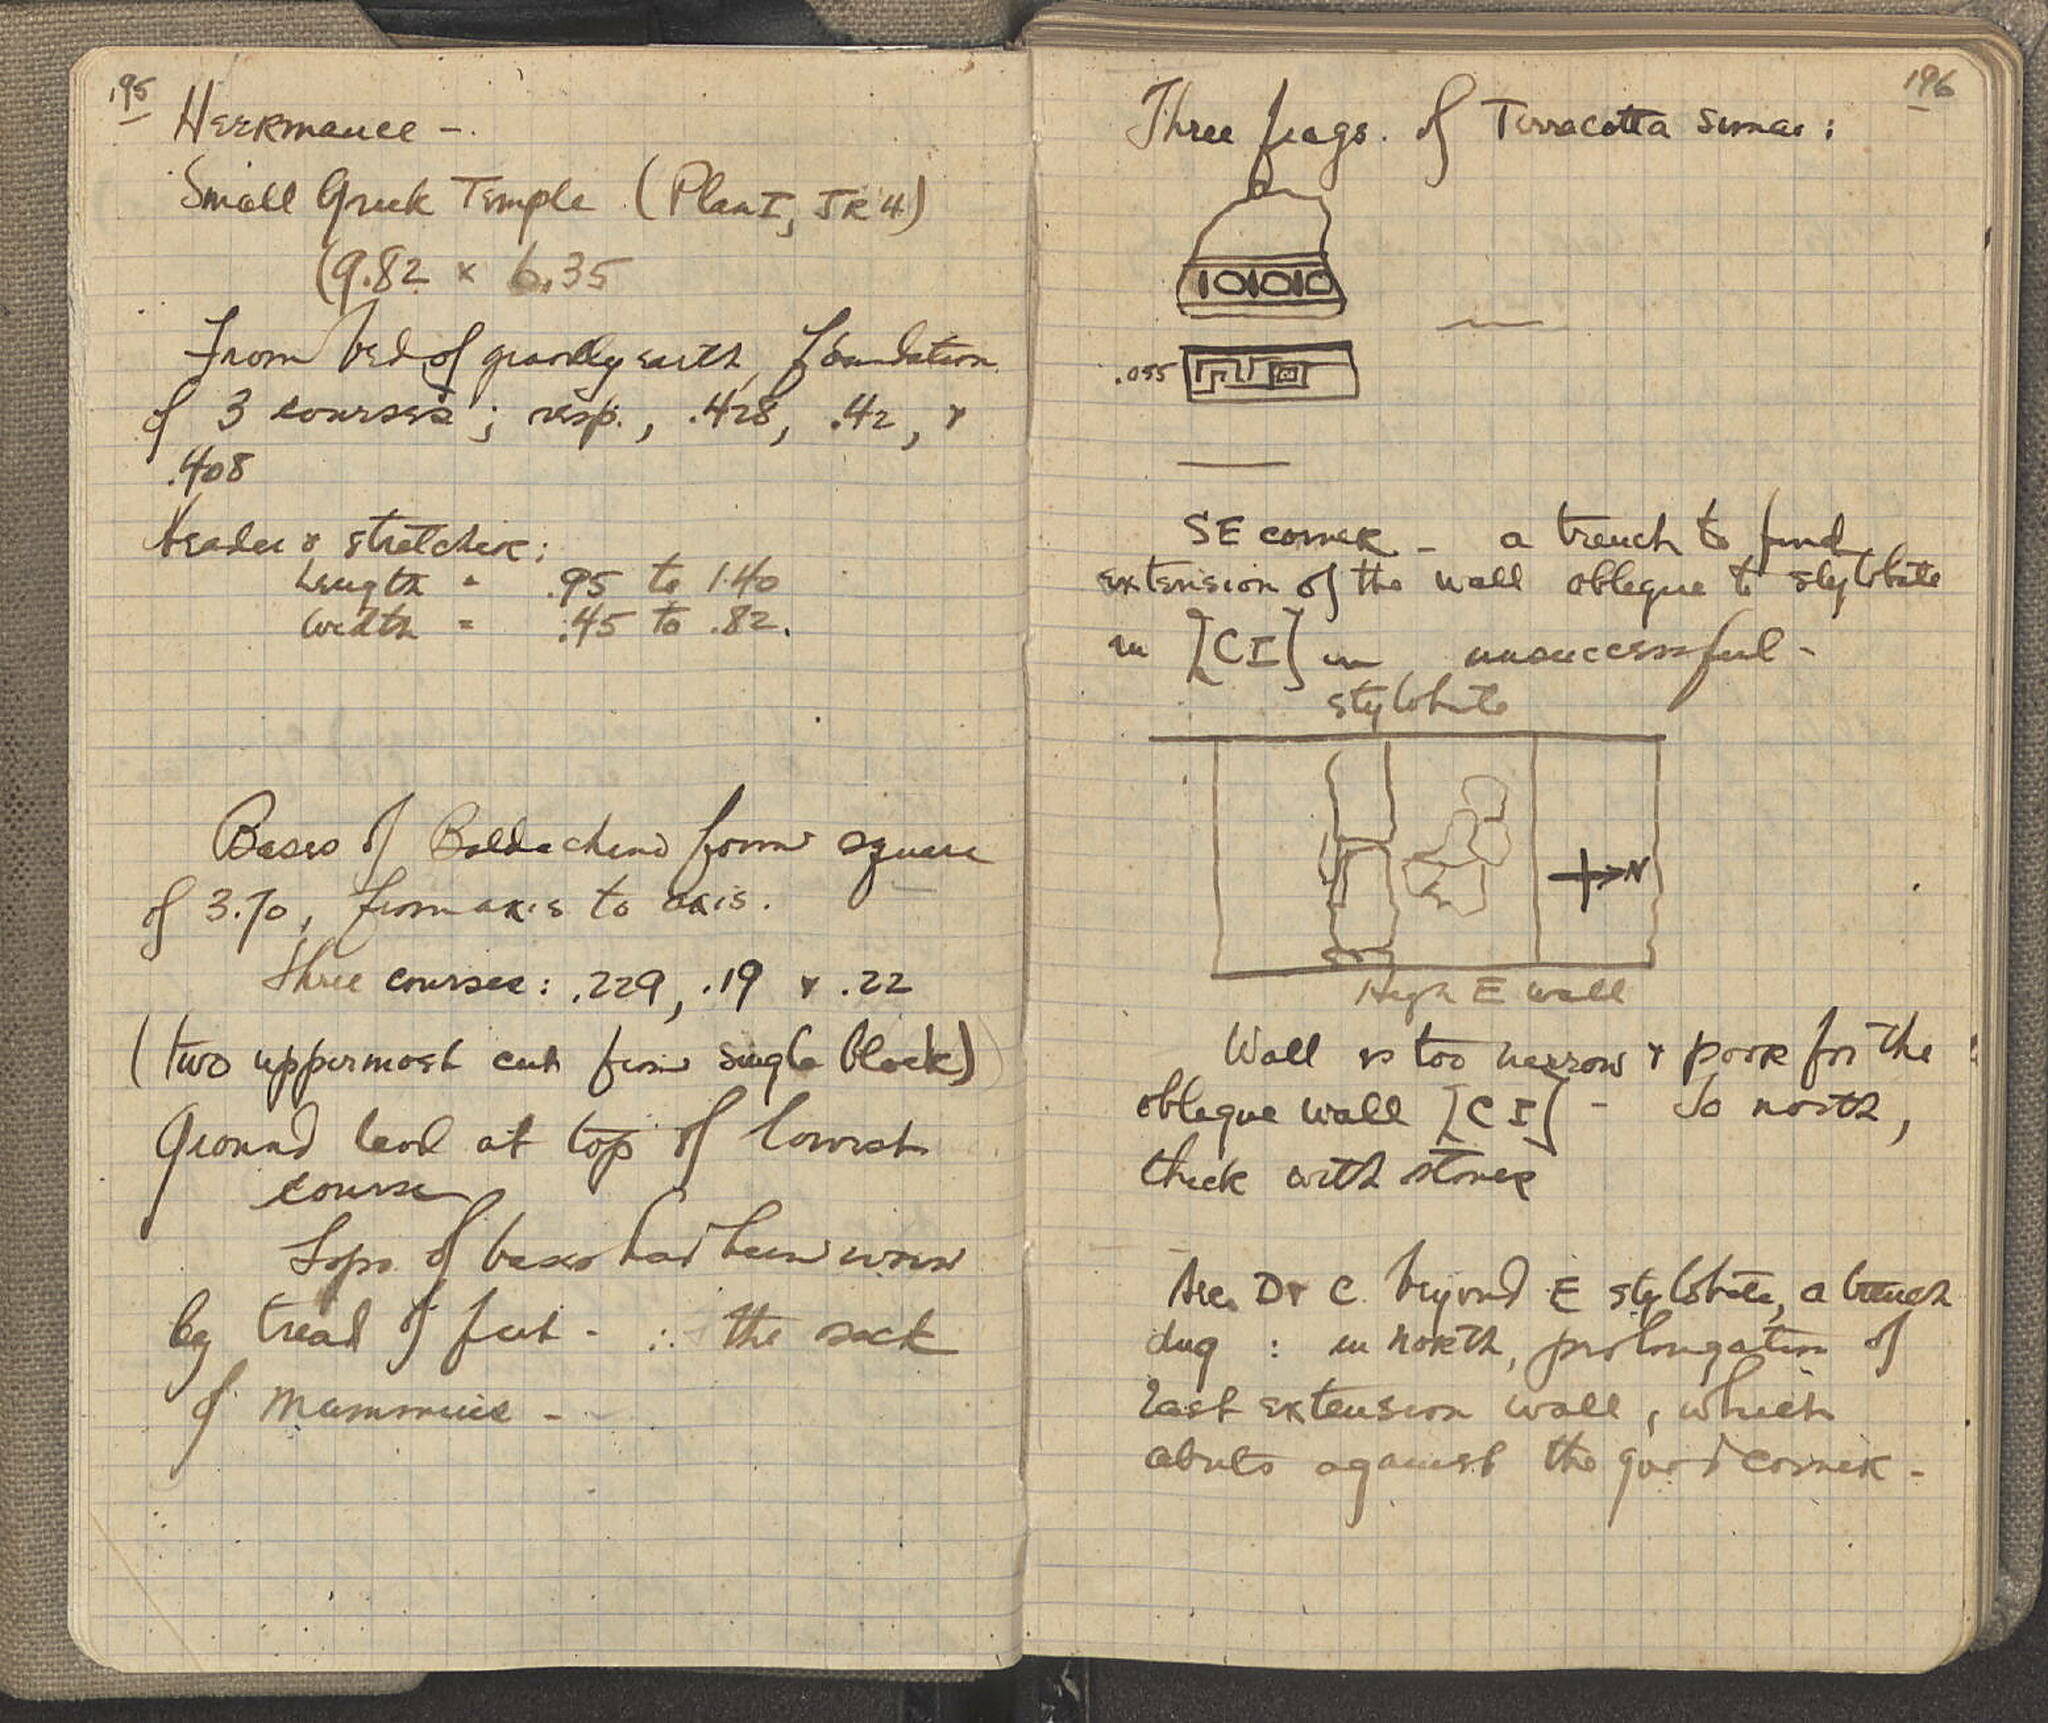 195
Heermance -.
Small Greek Temple (Plan I, JK 4)
(9.82 x 6.35
From bed of gravelly earth, foundation
of 3 courses; resp., .428, .42, &
.408
Header & stretcher:
Length = .95 to 1.40
Width = .45 to .82.
Bases of Baldachino form square
of 3.70, from axis to axis.
Three courses: .229, .19 & .22
(two uppermost cut from single block)
Ground level at top of lowest
course
Tops of bases had been worn
by tread of feet - ∴ the sack
of Mummius -
196
Three frags. of Terracotta simas:
.055
SE corner - a trench to find
extension of the wall oblique to stylobate
in [CI] in unsuccessful -
stylobate
N
High E wall
Wall is too narrow & poor for the
oblique wall [CI] - To north,
thick with stones
Sec. D & C beyond E stylobate, a trench
dug : in north, prolongation of
last extension wall, which
abuts against the good corner -